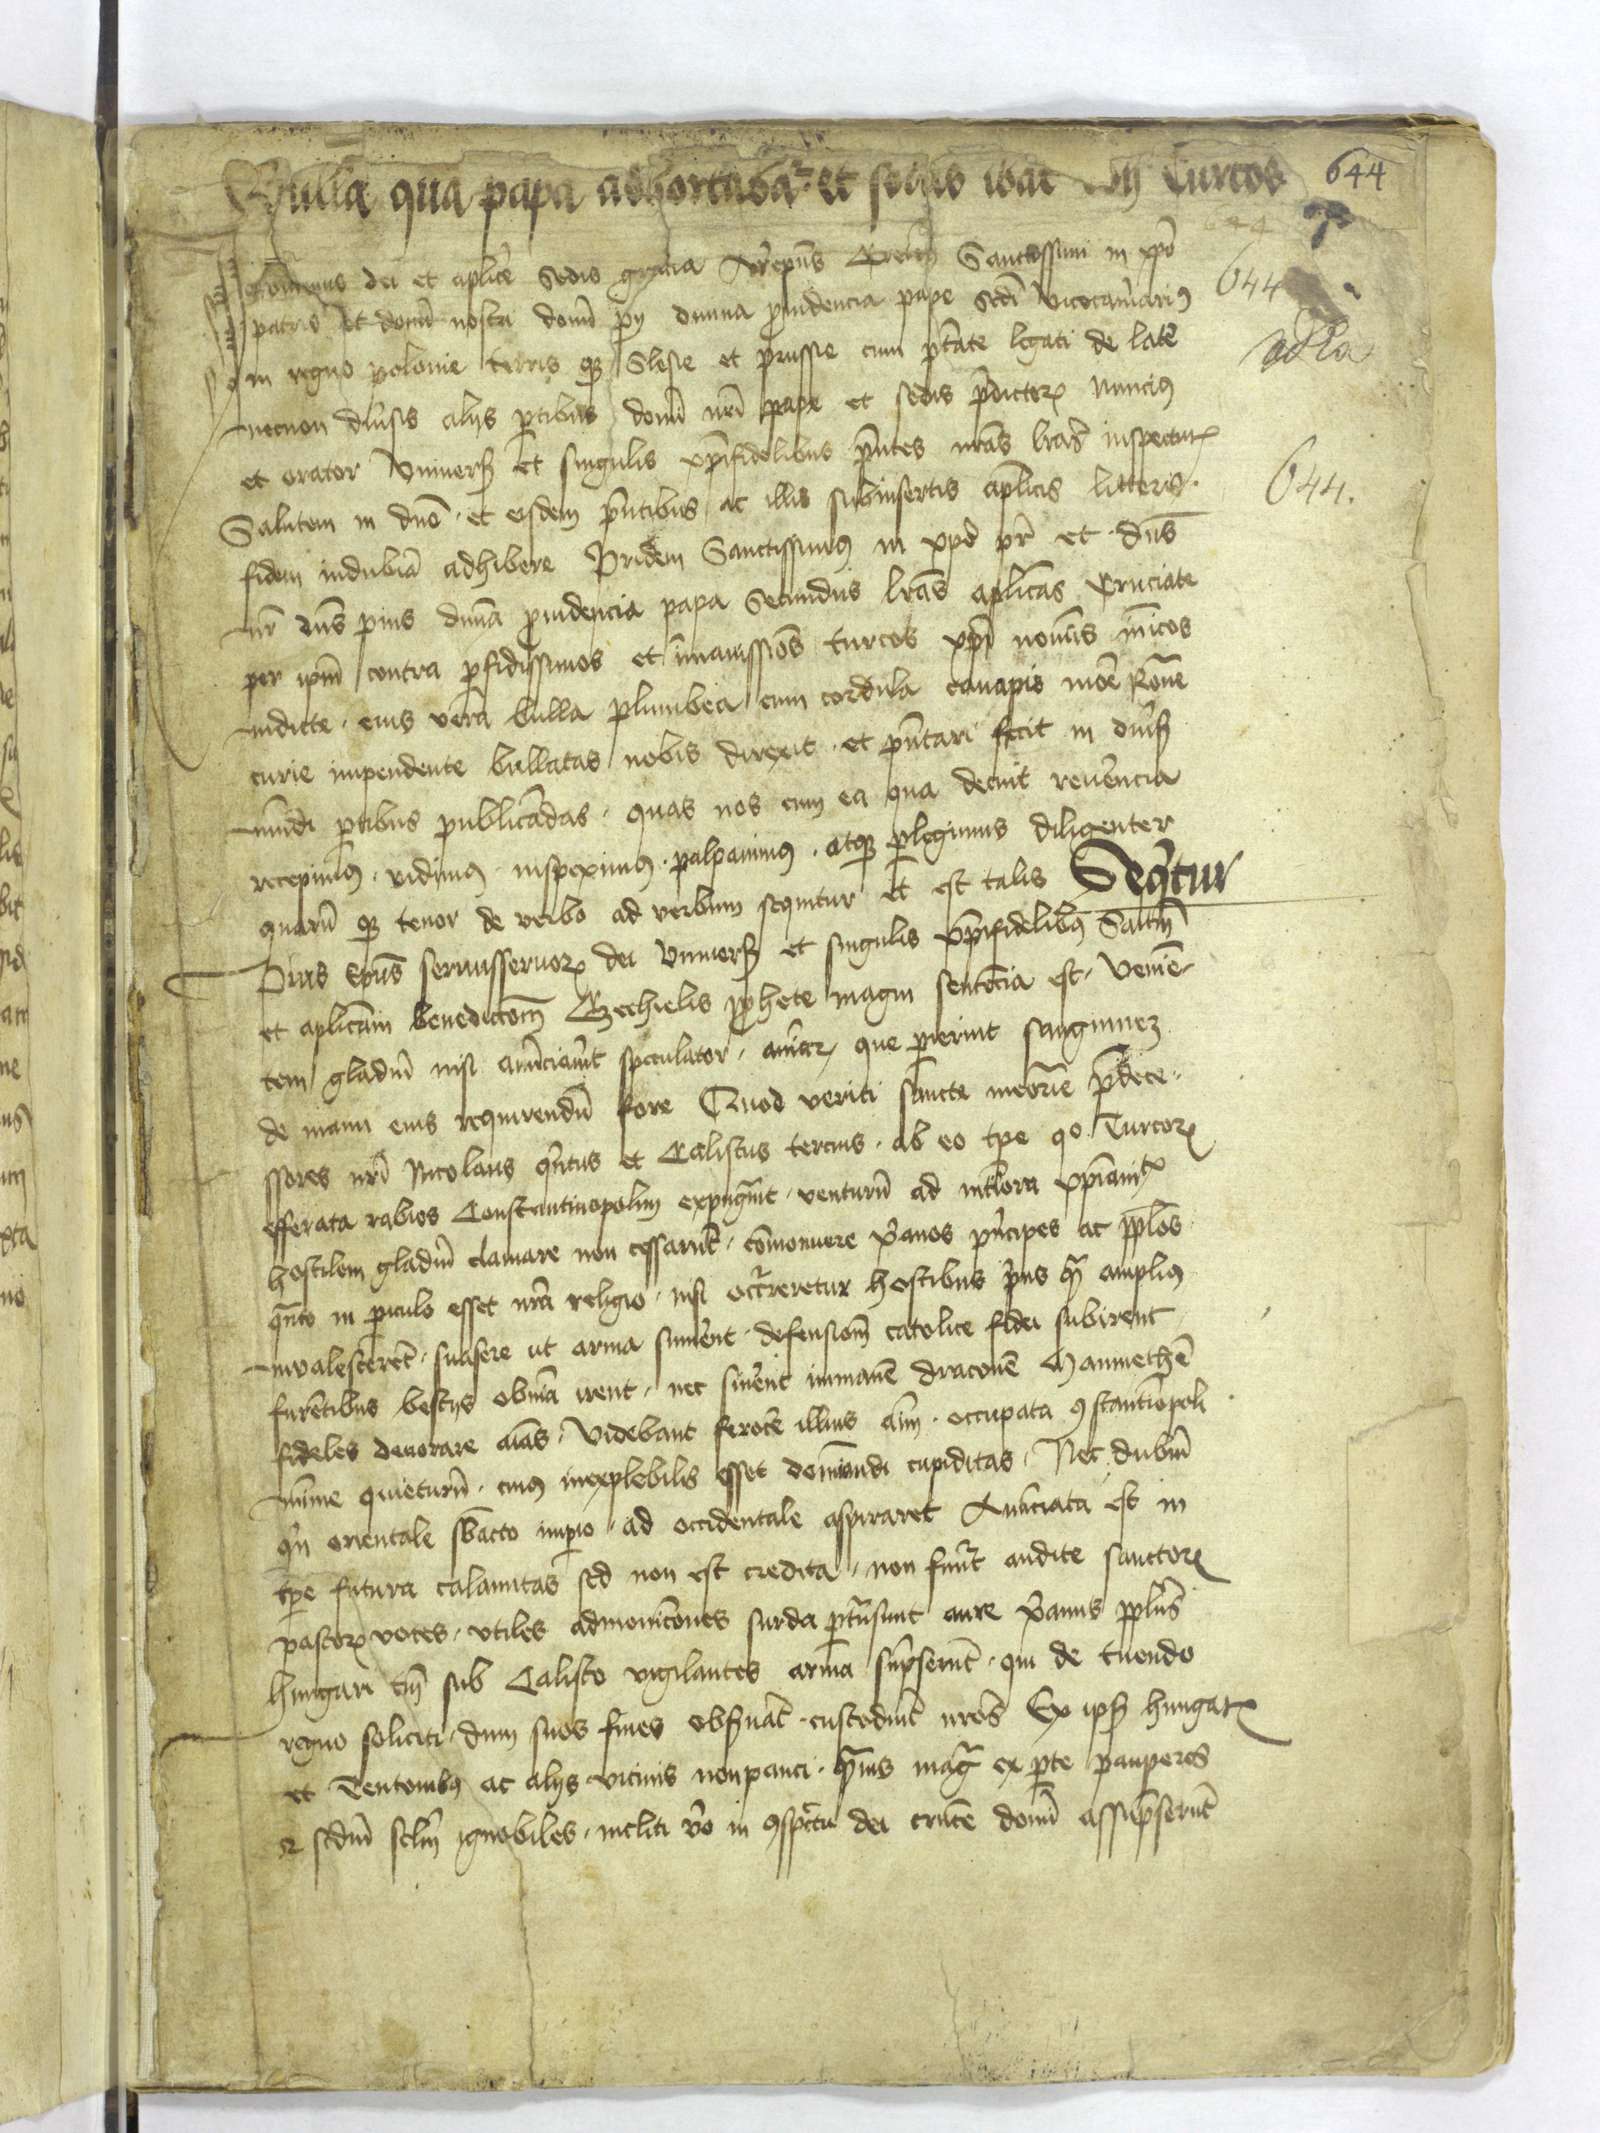 Bulla qua papa adhortabat~ et solus ibat Turcos 644
Jeronimus dei et aplice sedis gracia Archiepus Creten Sanctissimi in xpo 644
patris et domi nostri domi pij diuina prouidencia pape scdi Vicecamerarius 644
in regno polonie terris qz Slesie et prussie cum ptate legati de late
necnon diuersis alijs ptibus domi nri pape et sedis predictor Nuncius
et orator Vniuersis et singulis xpifidelibus pntes nras lras inspecturis 644.
Salutem in dno. et eisdem pntibus ac illis subinsertis aplicis litteris.
fidem indubiam adhibere Pridem Sanctissimus in xpo pr et dns
nr dns pius diuina prouidencia papa Secundus lras aplicas Cruciate
per ipm contra pfidissimos et imanissios turcos xpi nominis inicos
indicte. eius vera bulla plumbea cum cordula canapis more Roane
curie impendente bullatas nobis direxit. et pntari fecit in diuersis
mundi ptibus publicandas. quas nos cum ea qua decuit reuerencia
recepimus. vidimus. inspeximus. palpauimus. atqz plegimus diligenter
quarum qz tenor de verbo ad verbum sequitur et est talis Sequitur
Pius Epus seruusseruor dei Vniuersis et singulis xpifidelibus Saltem
et aplicam benedictoem Ezechielis pphete magni sentencia est. Venien
tem gladium nisi anunciauerit speculator. animar que perierint sanguinez
de manu eius requirendum fore Quod veriti sancte meorie predece
ssores nri Nicolaus quintus et Calistus tercius. ab eo tpe quo Turcor
efferata rabies Constantinopolim expugnauit. venturum ad interiora xpianitatis
hostilem gladium clamare non cessarunt. comonuere xpanos principes ac pplos
quanto in piculo esset nra religio. nisi occurreretur hostibus prius quam amplius
inualescerent. suasere ut arma sumerent. defensionem catolice fidei subirent
furentibus bestijs obuiam irent. nec sinerent immanem draconem Maumethem
fideles deuorare aias. Videbant ferocem illius aim. occupata 9stantinopoli
minime quieturum. cuius inexplebilis esset dominandi cupiditas. Nec dubium
quin orientale subacto imperio. ad occidentale aspiraret Anunciata est in
tpe futura calamitas sed non est credita. non fuerunt audite sanctor
pastor voces. vtiles admoniciones surda ptransiuit aure xpanus pplus
hungari tamen sub Calisto vigilantes arma sumpserunt. qui de tuendo
regno soliciti. dum suos fines obseruant. custodiunt nros Ex ipsis hungaris
et Teutonibus ac alijs vicinis nonpauci. quamuis magna ex parte pauperes
et scdm sclm ignobiles. incliti vero in 9spectu dei crucem domi assumpserunt